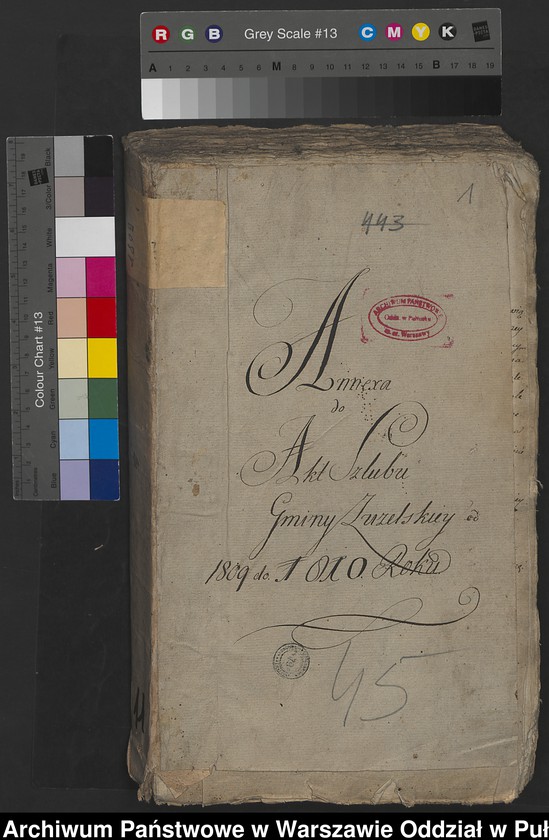 R G B Grey Scale #13 C M Y K
A 1 2 3 4 5 6 M 8 9 10 11 12 13 14 15 B 17 18 19
Colour Chart #13
Blue Cyan Green Yellow Red Magenta White 3/Color Black
1
443
ARCHIWUM PAŃSTWOWE
Oddz. w Pułtusku
m. st. Warszawy
Annexa
do
Akt Szlubu
Gminy Zuzelskiey od
1809 do 1810 Roku
45
Archiwum Państwowe w Warszawie Oddział w Puł